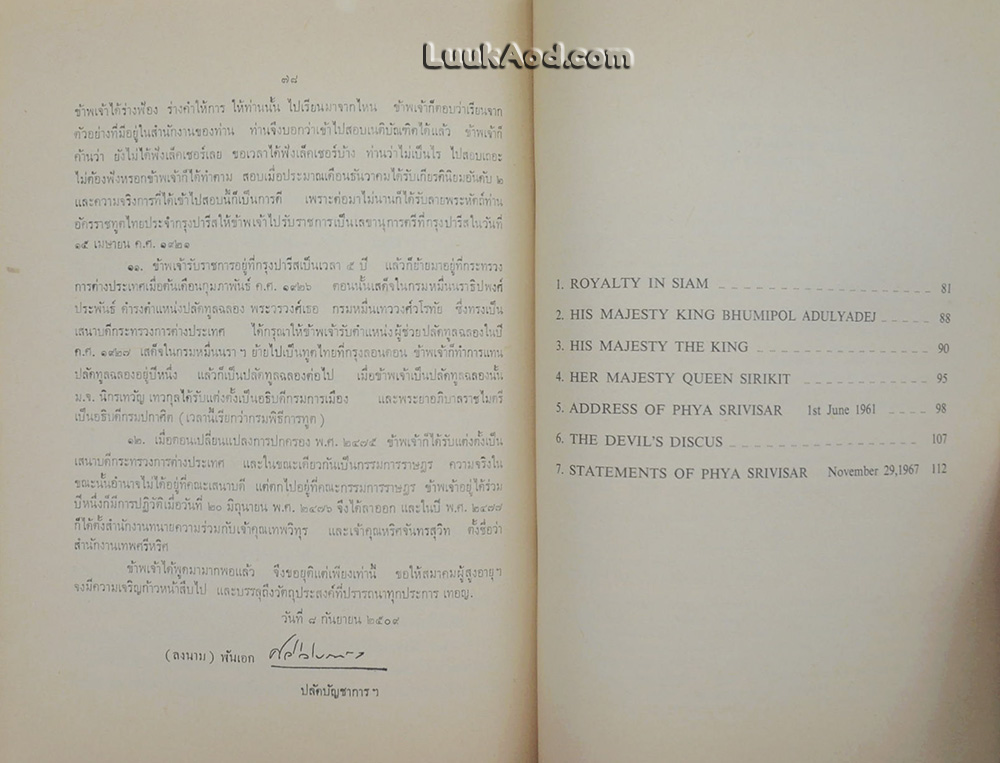 LuukAod.com
๗๘
ข้าพเจ้าได้ร่างฟ้อง ร่างคำให้การ ให้ท่านนั้น ไปเรียนมาจากไหน ข้าพเจ้าก็ตอบว่าเรียนจาก
ตัวอย่างที่มีอยู่ในสำนักงานของท่าน ท่านจึงบอกว่าเข้าไปสอบเนติบัณฑิตได้แล้ว ข้าพเจ้าก็
ค้านว่า ยังไม่ได้ฟังเล็คเชอร์เลย ขอเวลาได้ฟังเล็คเชอร์บ้าง ท่านว่าไม่เป็นไร ไปสอบเถอะ
ไม่ต้องฟังหรอกข้าพเจ้าก็ได้ทำตาม สอบเมื่อประมาณเดือนธันวาคมได้รับเกียรตินิยมอันดับ ๒
และความจริงการที่ได้เข้าไปสอบนี้ก็เป็นการดี เพราะต่อมาไม่นานก็ได้รับลายพระหัตถ์ท่าน
อัครราชทูตไทยประจำกรุงปารีสให้ข้าพเจ้าไปรับราชการเป็นเลขานุการตรีที่กรุงปารีสในวันที่
๑๕ เมษายน ค.ศ. ๑๙๒๑
๑๑. ข้าพเจ้ารับราชการอยู่ที่กรุงปารีสเป็นเวลา ๕ ปี แล้วก็ย้ายมาอยู่ที่กระทรวง
การต่างประเทศเมื่อต้นเดือนกุมภาพันธ์ ค.ศ. ๑๙๒๖ ตอนนั้นเสด็จในกรมหมื่นนราธิปพงศ์
ประพันธ์ ดำรงตำแหน่งปลัดทูลฉลอง พระวรวงศ์เธอ กรมหมื่นเทววงศ์วโรทัย ซึ่งทรงเป็น
เสนาบดีกระทรวงการต่างประเทศ ได้กรุณาให้ข้าพเจ้ารับตำแหน่งผู้ช่วยปลัดทูลฉลองในปี
ค.ศ. ๑๙๒๗ เสด็จในกรมหมื่นนราฯ ย้ายไปเป็นทูตไทยที่กรุงลอนดอน ข้าพเจ้าก็ทำการแทน
ปลัดทูลฉลองอยู่ปีหนึ่ง แล้วก็เป็นปลัดทูลฉลองต่อไป เมื่อข้าพเจ้าเป็นปลัดทูลฉลองนั้น
ม.จ. นิกรเทวัญ เทวกุลได้รับแต่งตั้งเป็นอธิบดีกรมการเมือง และพระยาอภิบาลราชไมตรี
เป็นอธิบดีกรมปกาศิต (เวลานี้เรียกว่ากรมพิธีการทูต)
๑๒. เมื่อตอนเปลี่ยนแปลงการปกครอง พ.ศ. ๒๔๗๕ ข้าพเจ้าก็ได้รับแต่งตั้งเป็น
เสนาบดีกระทรวงการต่างประเทศ และในขณะเดียวกันเป็นกรรมการราษฎร ความจริงใน
ขณะนั้นอำนาจไม่ได้อยู่ที่คณะเสนาบดี แต่ตกไปอยู่ที่คณะกรรมการราษฎร ข้าพเจ้าอยู่ได้ร่วม
ปีหนึ่งก็มีการปฏิวัติเมื่อวันที่ ๒๐ มิถุนายน พ.ศ. ๒๔๗๖ จึงได้ลาออก และในปี พ.ศ. ๒๔๗๗
ก็ได้ตั้งสำนักงานทนายความร่วมกับเจ้าคุณเทพวิทุร และเจ้าคุณหริศจันทรสุวิท ตั้งชื่อว่า
สำนักงานเทพศรีหริศ
ข้าพเจ้าได้พูดมามากพอแล้ว จึงขอยุติแต่เพียงเท่านี้ ขอให้สมาคมผู้สูงอายุฯ
จงมีความเจริญก้าวหน้าสืบไป และบรรลุถึงวัตถุประสงค์ที่ปรารถนาทุกประการ เทอญ.
วันที่ ๘ กันยายน ๒๕๐๙
(ลงนาม) พันเอก
ปลัดบัญชาการฯ
1. ROYALTY IN SIAM 81
2. HIS MAJESTY KING BHUMIPOL ADULYADEJ 88
3. HIS MAJESTY THE KING 90
4. HER MAJESTY QUEEN SIRIKIT 95
5. ADDRESS OF PHYA SRIVISAR 1st June 1961 98
6. THE DEVIL'S DISCUS 107
7. STATEMENTS OF PHYA SRIVISAR November 29,1967 112